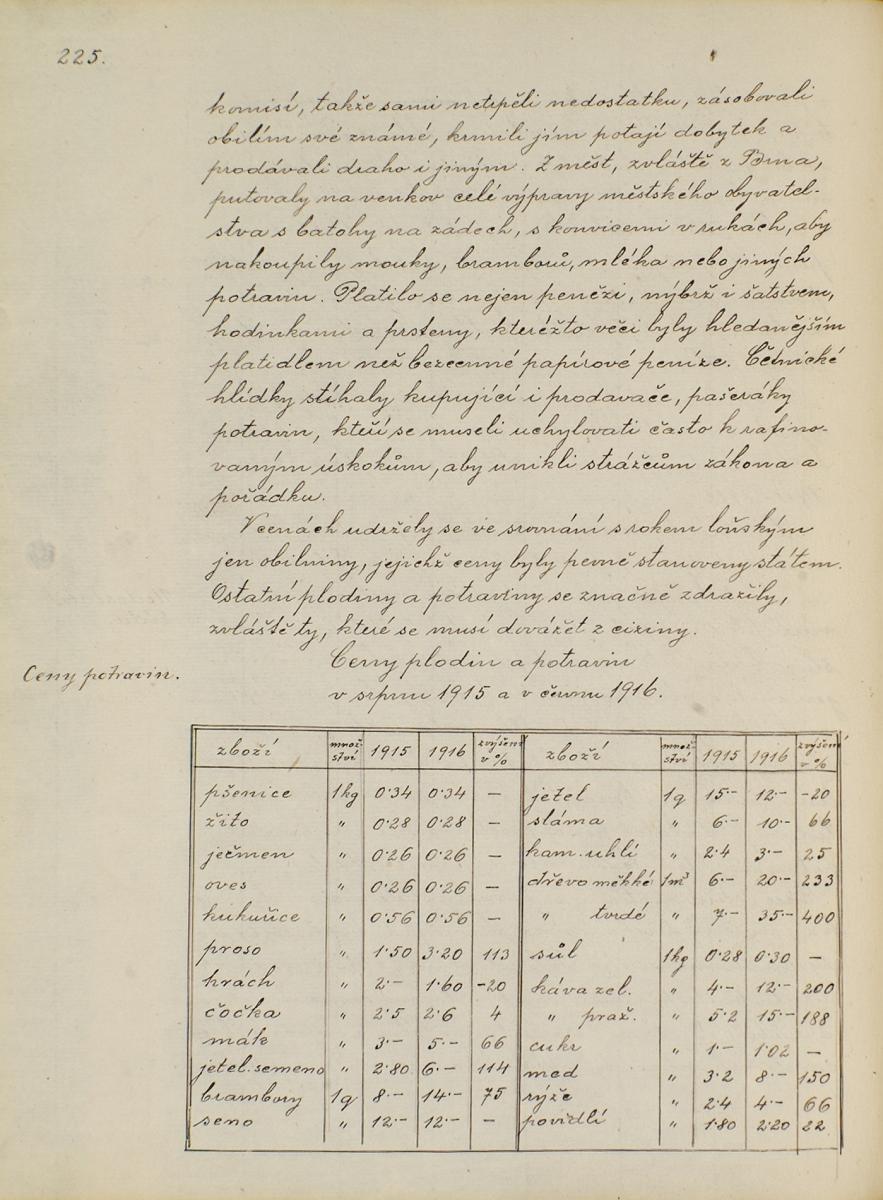 225.
komisí, takže sami netrpěli nedostatku, zásobovali
obilím své známé, krmili jím potají dobytek a
prodávali draho i jiným. Z měst, zvláště z Brna,
putovaly na venkov celé výpravy městského obyvatel-
stva s batohy na zádech, s konvicemi v rukách, aby
nakoupily mouky, bramborů, mléka nebo jiných
potravin. Platilo se nejen penězi, nýbrž i šatstvem,
hodinkami a prsteny, kteréžto věci byly hledanějším
platidlem než bezcenné papírové peníze. Četnické
hlídky stíhaly kupující i prodavače, pašeráky
potravin, kteří se museli uchylovati často k rafino-
vaným úskokům, aby unikli strážcům zákona a
pořádku.
V cenách udržely se ve srovnání s rokem loňským
jen obilniny, jejichž ceny byly pevně stanoveny státem.
Ostatní plodiny a potraviny se značně zdražily,
zvláště ty, které se musí dovážet z ciziny.
Ceny potravin.
Ceny plodin a potravin
v srpnu 1915 a v červnu 1916.
zboží množ-ství 1915 1916 zvýšení v % zboží množ-ství 1915 1916 zvýšení v %
pšenice 1kg 0·34 0·34 — jetel 1q 15·- 12·- -20
žito " 0·28 0·28 — sláma " 6·- 10·- 66
ječmen " 0·26 0·26 — kam. uhlí " 2·4 3·- 25
oves " 0·26 0·26 — dřevo měkké 1m³ 6·- 20·- 233
kukuřice " 0·56 0·56 — " tvrdé " 7·- 35·- 400
proso " 1·50 3·20 113 sůl 1kg 0·28 0·30 —
hrách " 2·- 1·60 -20 káva zel. " 4·- 12·- 200
čočka " 2·5 2·6 4 " praž. " 5·2 15·- 188
mák " 3·- 5·- 66 cukr " 1·- 1·02 —
jetel. semeno " 2·80 6·- 114 med " 3·2 8·- 150
brambory 1q 8·- 14·- 75 rýže " 2·4 4·- 66
seno " 12·- 12·- - povidlí " 1·80 2·20 22